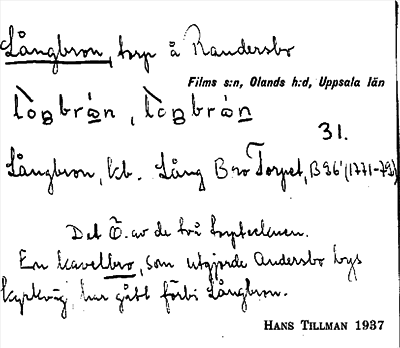 Långbron, torp å Randersbo
Films s:n, Olands h:d, Uppsala län
31.
Långbron, kb. Lång Bro Torpet, B 26 (1771-79)
Det Ö. av de två torpställena.
En kavelbro, som utgjorde Andersbo bys
kyrkväg har gått förbi Långbron.
HANS TILLMAN 1937